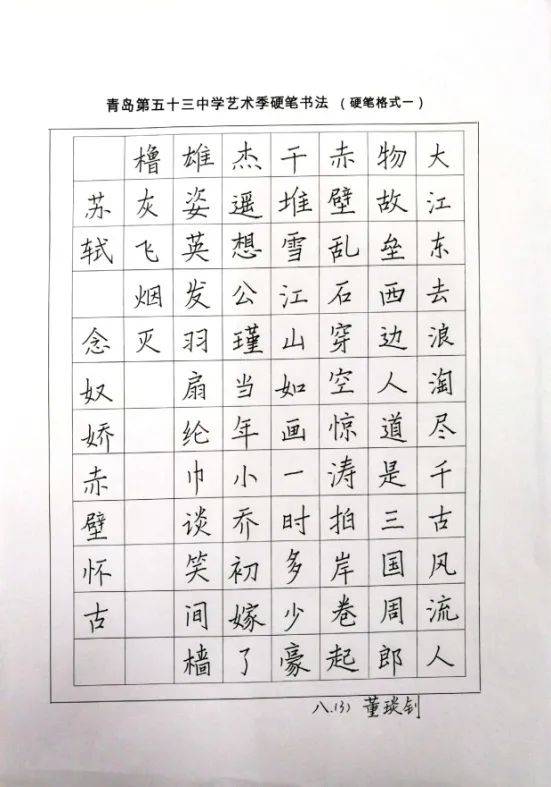 青岛第五十三中学艺术季硬笔书法 (硬笔格式一)
大江东去浪淘尽千古风流人
物故垒西边人道是三国周郎
赤壁乱石穿空惊涛拍岸卷起
千堆雪江山如画一时多少豪
杰遥想公瑾当年小乔初嫁了
雄姿英发羽扇纶巾谈笑间樯
橹灰飞烟灭
苏轼 念奴娇赤壁怀古
八.(3) 董琰钊